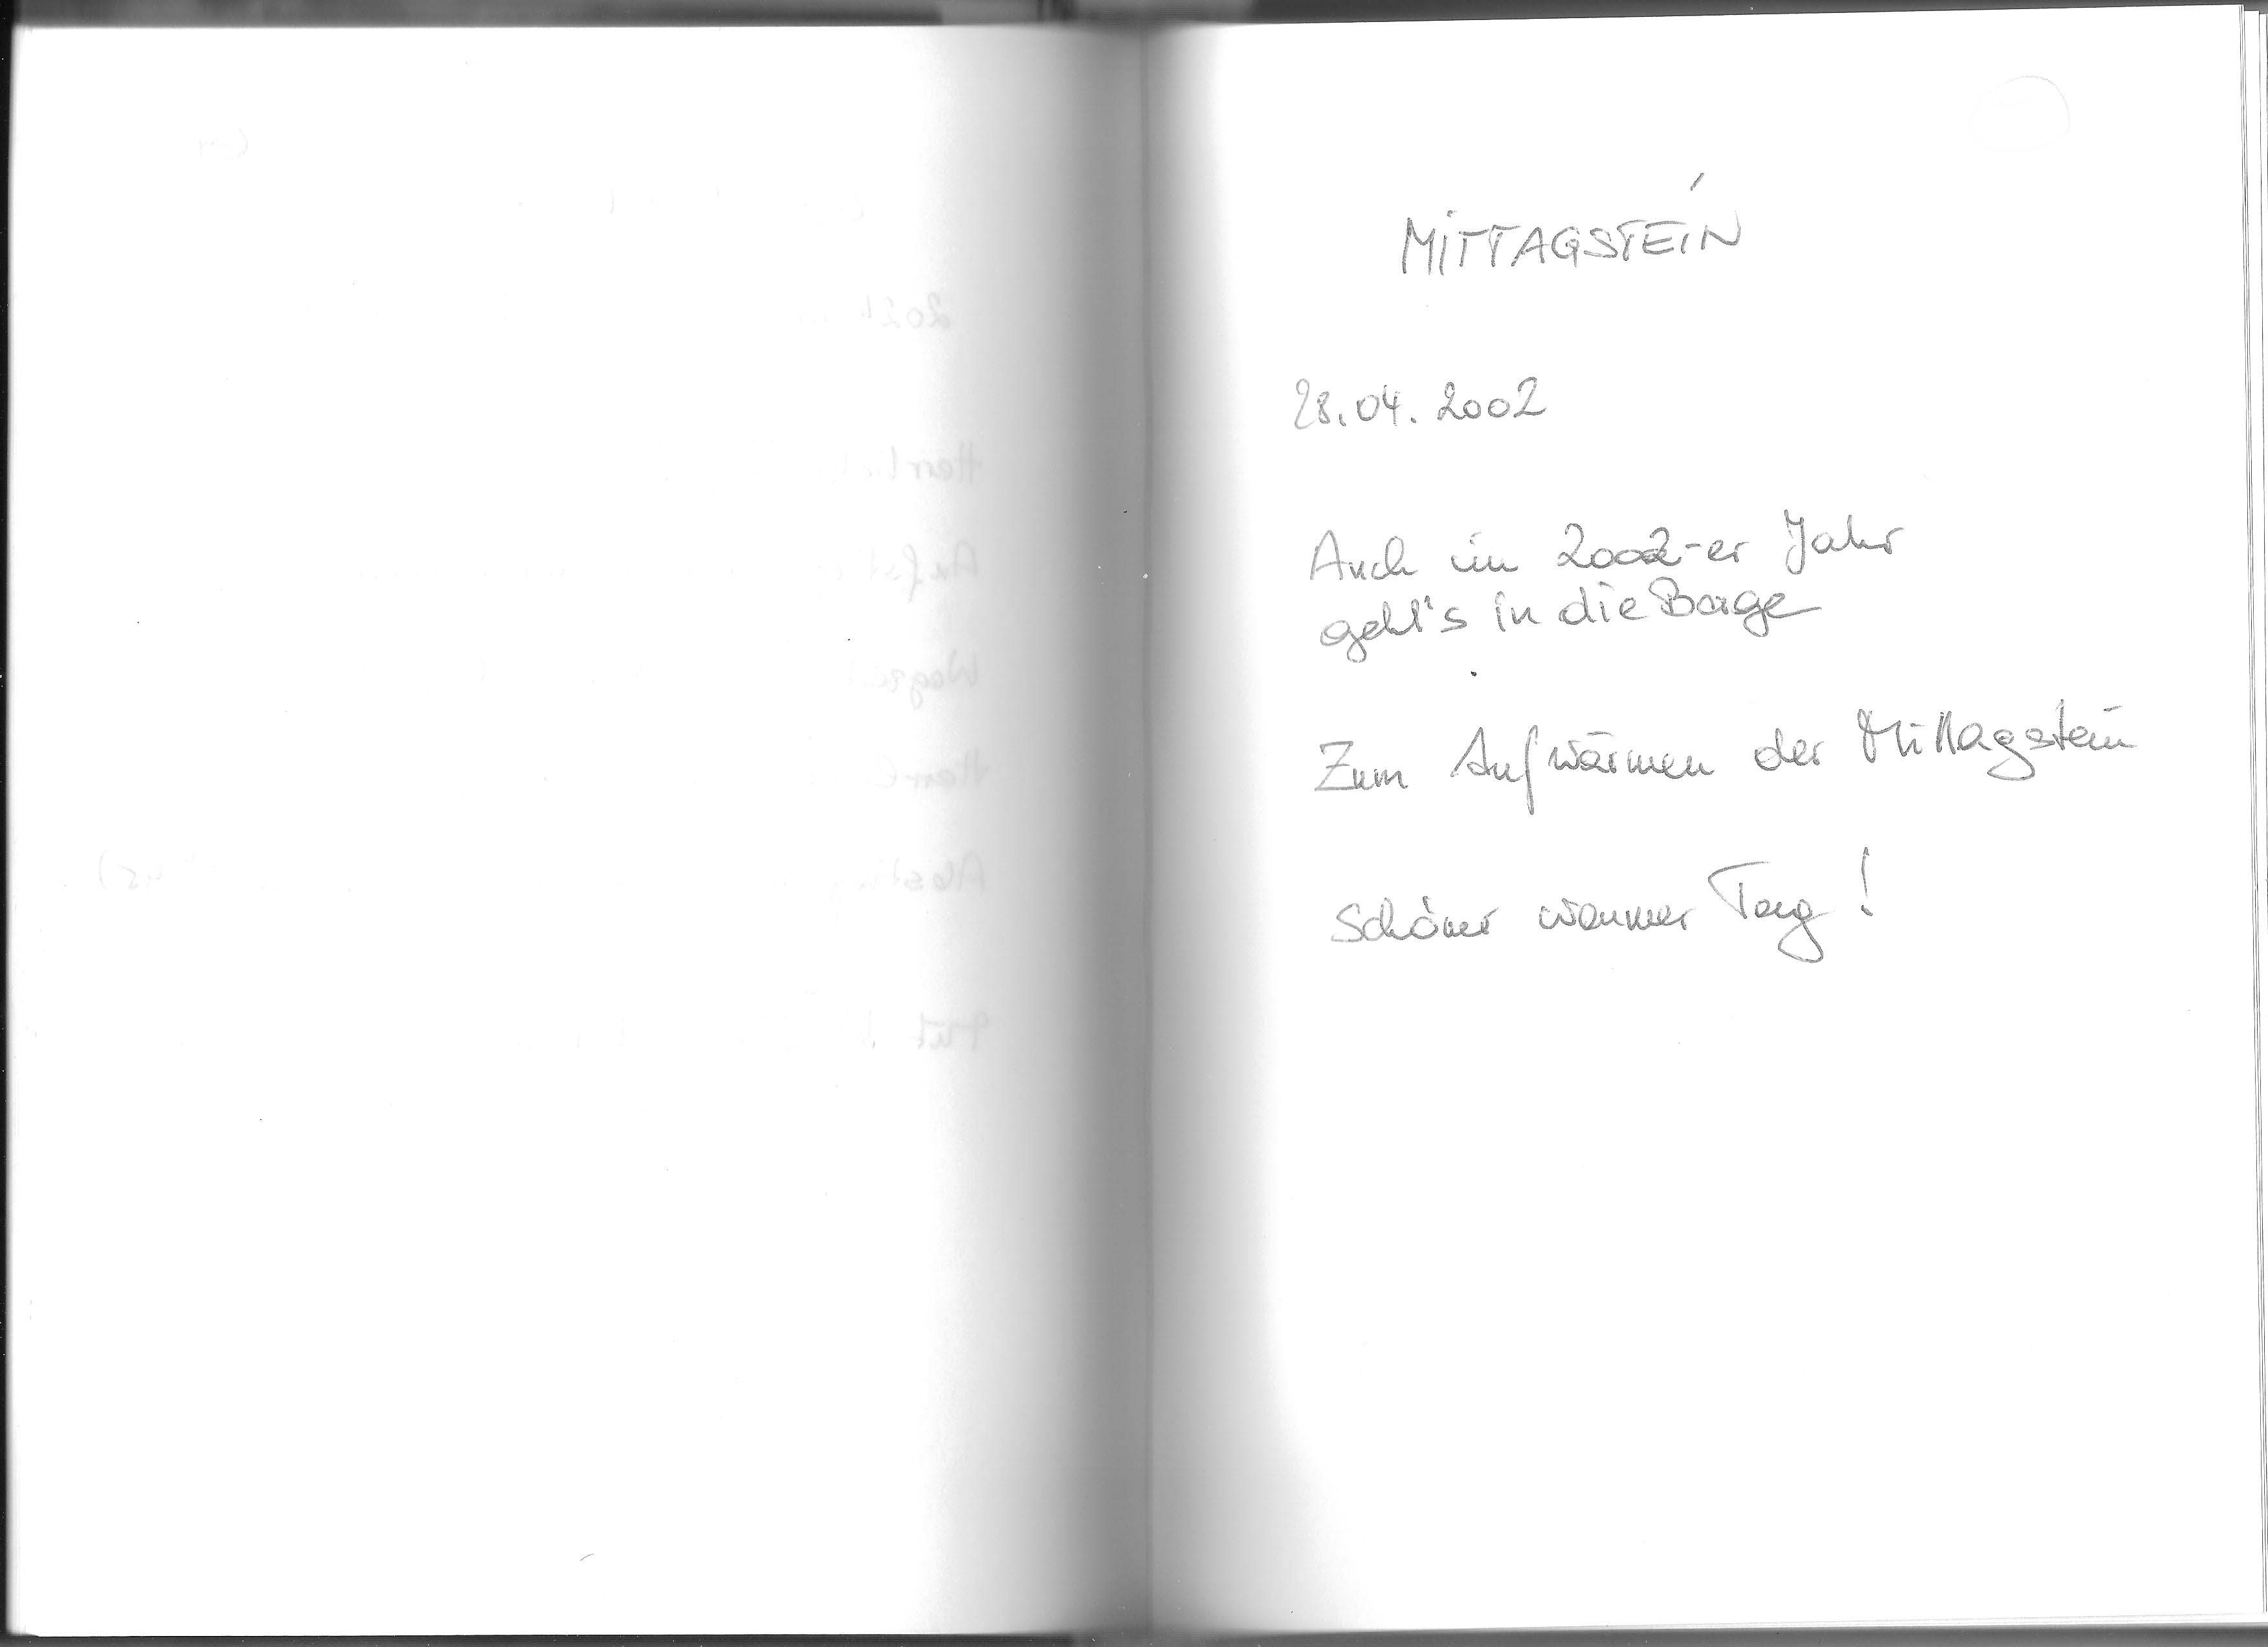 MITTAGSTEIN
28.04.2002
Auch im 2002-er Jahr
geht's in die Berge
Zum Aufwärmen der Mittagstein
Schöner warmer Tag!